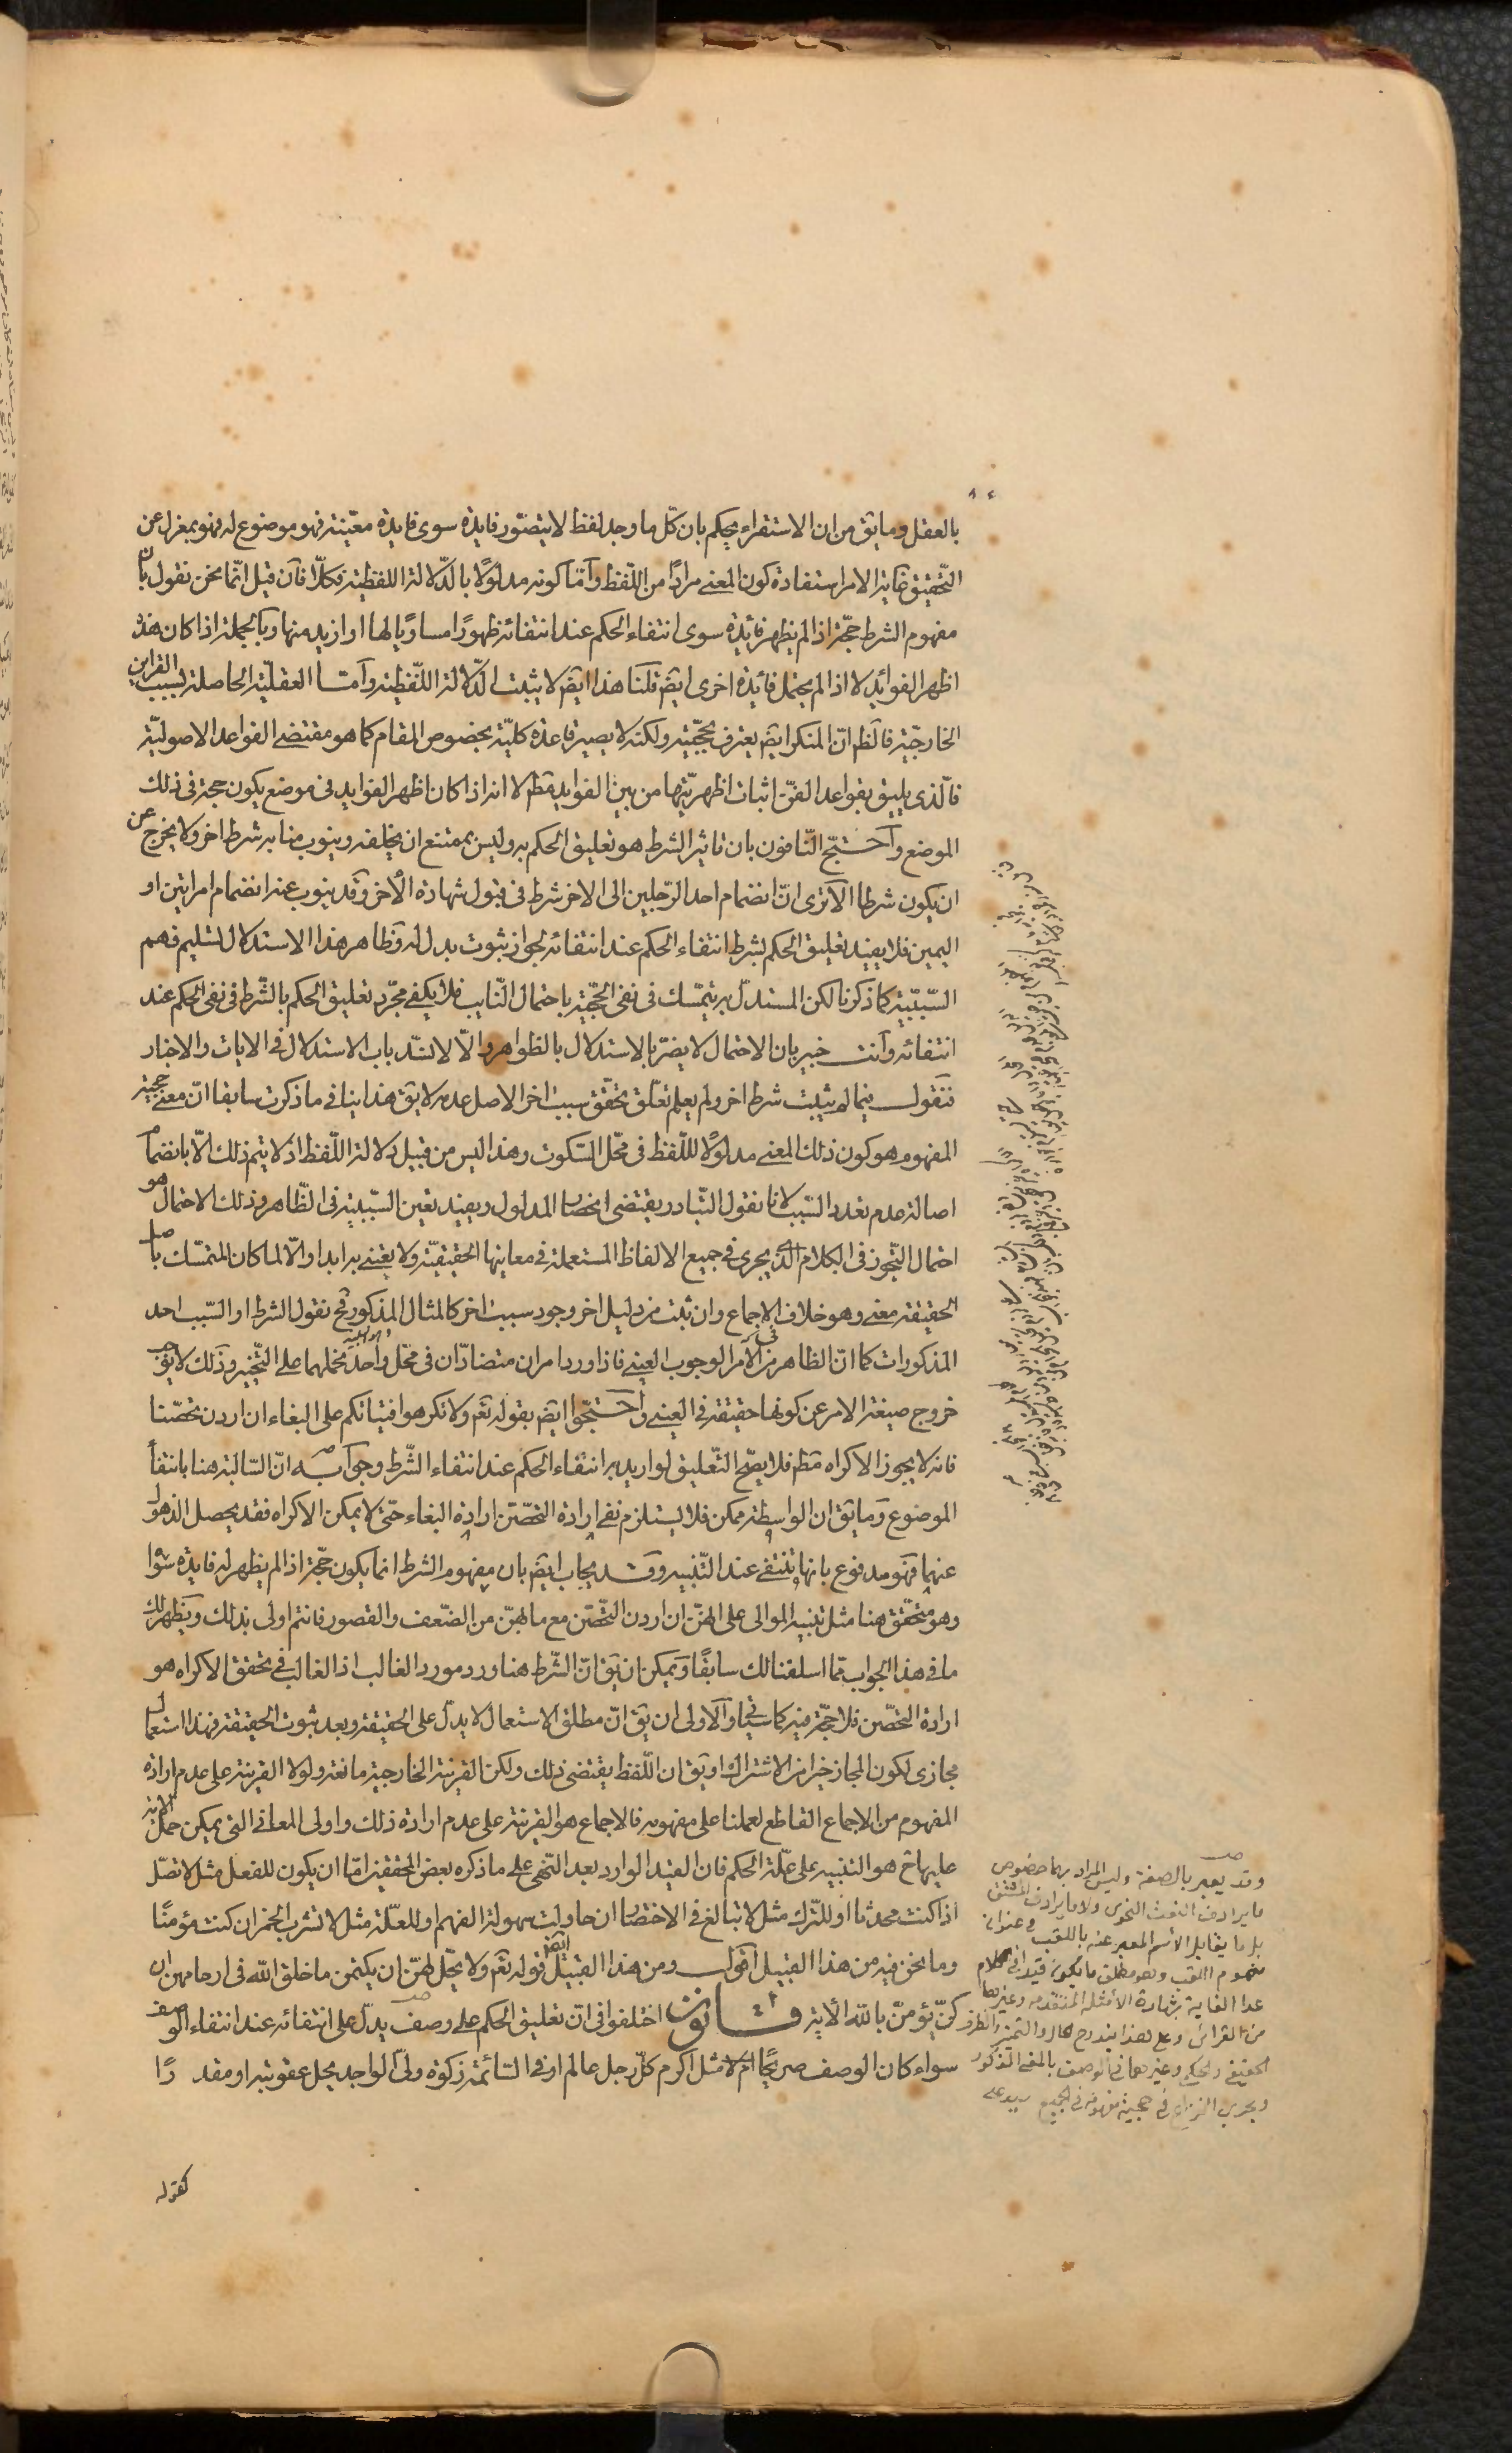 بالعقل وما يق من ان الاستقراء يحكم بان كلّ ما وجد لفظ لا يتصّور فايدة سوى فايدة معيّنة فهو موضوع له فهو بمعزل عن
التّحقيق غاية الامر استفادة كون المعنى مرادًا من اللّفظ وأمّا كونه مدلولًا بالدّلالة اللفظية فكلّا فان قيل انّما نحن نقول بان
مفهوم الشرط حجّة اذا لم يظهر فائدة سوى انتفاء الحكم عند انتفائه ظهورًا مساويًا لها او ازيد منها وبالجملة اذا كان هذه
اظهر الفوائد لا اذا لم يحتمل فائدة اخرى ايضً قلنا هذا ايضً لا يثبت الدّلالة اللّفظية وأمّا العقليّة الحاصلة بسبب القراين
الخارجيّة فالظم انّ المنكر ايضً يعترف بحجّيته ولكنه لا يصير قاعدة كليّة بخصوص المقام كما هو مقتضى القواعد الاصوليّة
فالّذى يليق بقواعد الفنّ اثبات اظهريّتها من بين الفوايد مطم لا انه اذا كان اظهر الفوايد فى موضع يكون حجة فى ذلك
الموضع وأحتجّ النّافون بان تاثير الشرط هو تعليق الحكم به وليس بممتنع ان يخلفه وينوب منابه شرط اخر ولا يخرج عن
ان يكون شرطا الا ترى انّ انضمام احد الرّجلين الى الاخر شرط فى قبول شهادة الاخر وقد ينوب عنه انضمام امراتين او
اليمين فلا يفيد تعليق الحكم بشرط انتفاء الحكم عند انتفائه لجواز ثبوت بدل له وظاهر هذا الاستدلال تسليم فهم
السّببيّة كما ذكرنا لكن المستدلّ به يتمسّك فى نفى الحجّية باحتمال النّايب فلا يكفى مجرّد تعليق الحكم بالشّرط فى نفى الحكم عند
انتفائه وأنت خبير بان الاحتمال لا يضرّ بالاستدلال بالظواهر والّا لانسّد باب الاستدلال فى الايات والاخبار
فنقول فيما لم يثبت شرط اخر ولم يعلم تعلّق تحقّق سبب اخر الاصل عدمه لا يق هذا ينافى ما ذكرت سابقا انّ معنى حجية
المفهوم هو كون ذلك المعنى مدلولًا للّفظ فى محّل السّكوت وهذا ليس من قبيل دلالة اللّفظ اذ لا يتم ذلك الّا بانضمام
اصالة عدم تعدد السّبب لانا نقول التّبادر يقتضى انحصار المدلول ويفيد تعين السّببيّة فى الظّاهر وذلك الاحتمال هو
احتمال التّجوز فى الكلام الذى يجرى فى جميع الالفاظ المستعملة فى معاينها الحقيقيّة ولا يعتنى به ابدا والّا لما كان المتمسّك باصل
الحقيقة معنى وهو خلاف الاجماع وان ثبت من دليل اخر وجود سبب اخر كالمثال المذكور فح نقول الشرط او السّبب احد
المذكورات كما انّ الظاهر من الامر الوجوب العينى فاذا ورد امران متضادّان فى محّل واحد نحملهما على التّخيير وذلك لا يوجب
خروج صيغة الامر عن كونها حقيقة فى العينى واحتجّوا ايضً بقوله تعم ولا تكرهوا فتياتكم على البغاء ان اردن تحصّنا
فانه لا يجوز الاكراه مطم فلا يصّح التّعليق لو اريد به انتفاء الحكم عند انتفاء الشّرط وجوابه انّ السّالبة هنا بانتفاء
الموضوع وما يق ان الواسطة ممكن فلا يستلزم نفى ارادة التحصّن ارادة البغاء حتّى لا يمكن الاكراه فقد يحصل الذهول
عنهما فهو مدفوع بانها تنتفى عند التّنبيه وقد يجاب ايضً بان مفهوم الشرط انما يكون حجّة اذا لم يظهر له فايدة سواه
وهو متحقّق هنا مثل تنبيه الموالى على انهنّ ان اردن التحصّن مع ما بهنّ من الضّعف والقصور فانتم اولى بذلك ويظهر لك
ما فى هذا الجواب ممّا اسلفنا لك سابقًا ويمكن ان يق انّ الشّرط هنا ورد مورد الغالب اذ الغالب فى تحقق الاكراه هو
ارادة التحصّن فلا حجّة فيه كما سياتى والاولى ان يق انّ مطلق الاستعمال لا يدلّ على الحقيقة وبعد ثبوت الحقيقة فهذا استعمال
مجازى لكون المجاز خيرا من الاشتراك او يق ان اللّفظ يقتضى ذلك ولكن القرينة الخارجية مانعة ولولا القرينة على عدم ارادة
المفهوم من الاجماع القاطع لعملنا على مفهومه فالاجماع هو القرينة على عدم ارادة ذلك واولى المعانى التى يمكن حمل الاية
عليها ح هو التنبيه على علّة الحكم فان القيد الوارد بعد النّهى على ما ذكره بعض المحققين امّا ان يكون للفعل مثل لا تصّل
اذا كنت محدثا او للتّرك مثل لا تبالغ فى الاختصار ان حاولت سهولة الفهم او للعلّة مثل لا تشرب الخمر ان كنت مؤمنًا
وما نحن فيه من هذا القبيل اقول ومن هذا القبيل ايضً قوله تعم ولا يحّل لهنّ ان يكتمن ما خلق الله فى ارحامهن ان
كنّ يؤمنّ بالله الاية قانون اختلفوا فى انّ تعليق الحكم على وصف يدلّ على انتفائه عند انتفاء الوصف
سواء كان الوصف صريحًا ام لا مثل اكرم كلّ رجل عالم او فى السّائمة زكوة ولىّ الواجد يحل عقوبته او مقدرًا
كقوله
وقد يعبر بالصفة وليس المراد بها خصوص
ما يرادف النعت النحوى ولا ما يرادف المشتق
بل ما يقابل الاسم المعبر عنه باللقب وعنوانه
مفهوم اللقب وهو مطلق ما يكون قيدا فى الكلام
عدا الغاية بشهادة الامثلة المتقدمة وغيرها
من القرائن وعلى هذا يندرج الحال والتميز والظرف
الحقيقى والحكمى وغيرهما فى الوصف بالمعنى المذكور
ويجرى النزاع فى حجية مفهومه فى الجميع سيد على